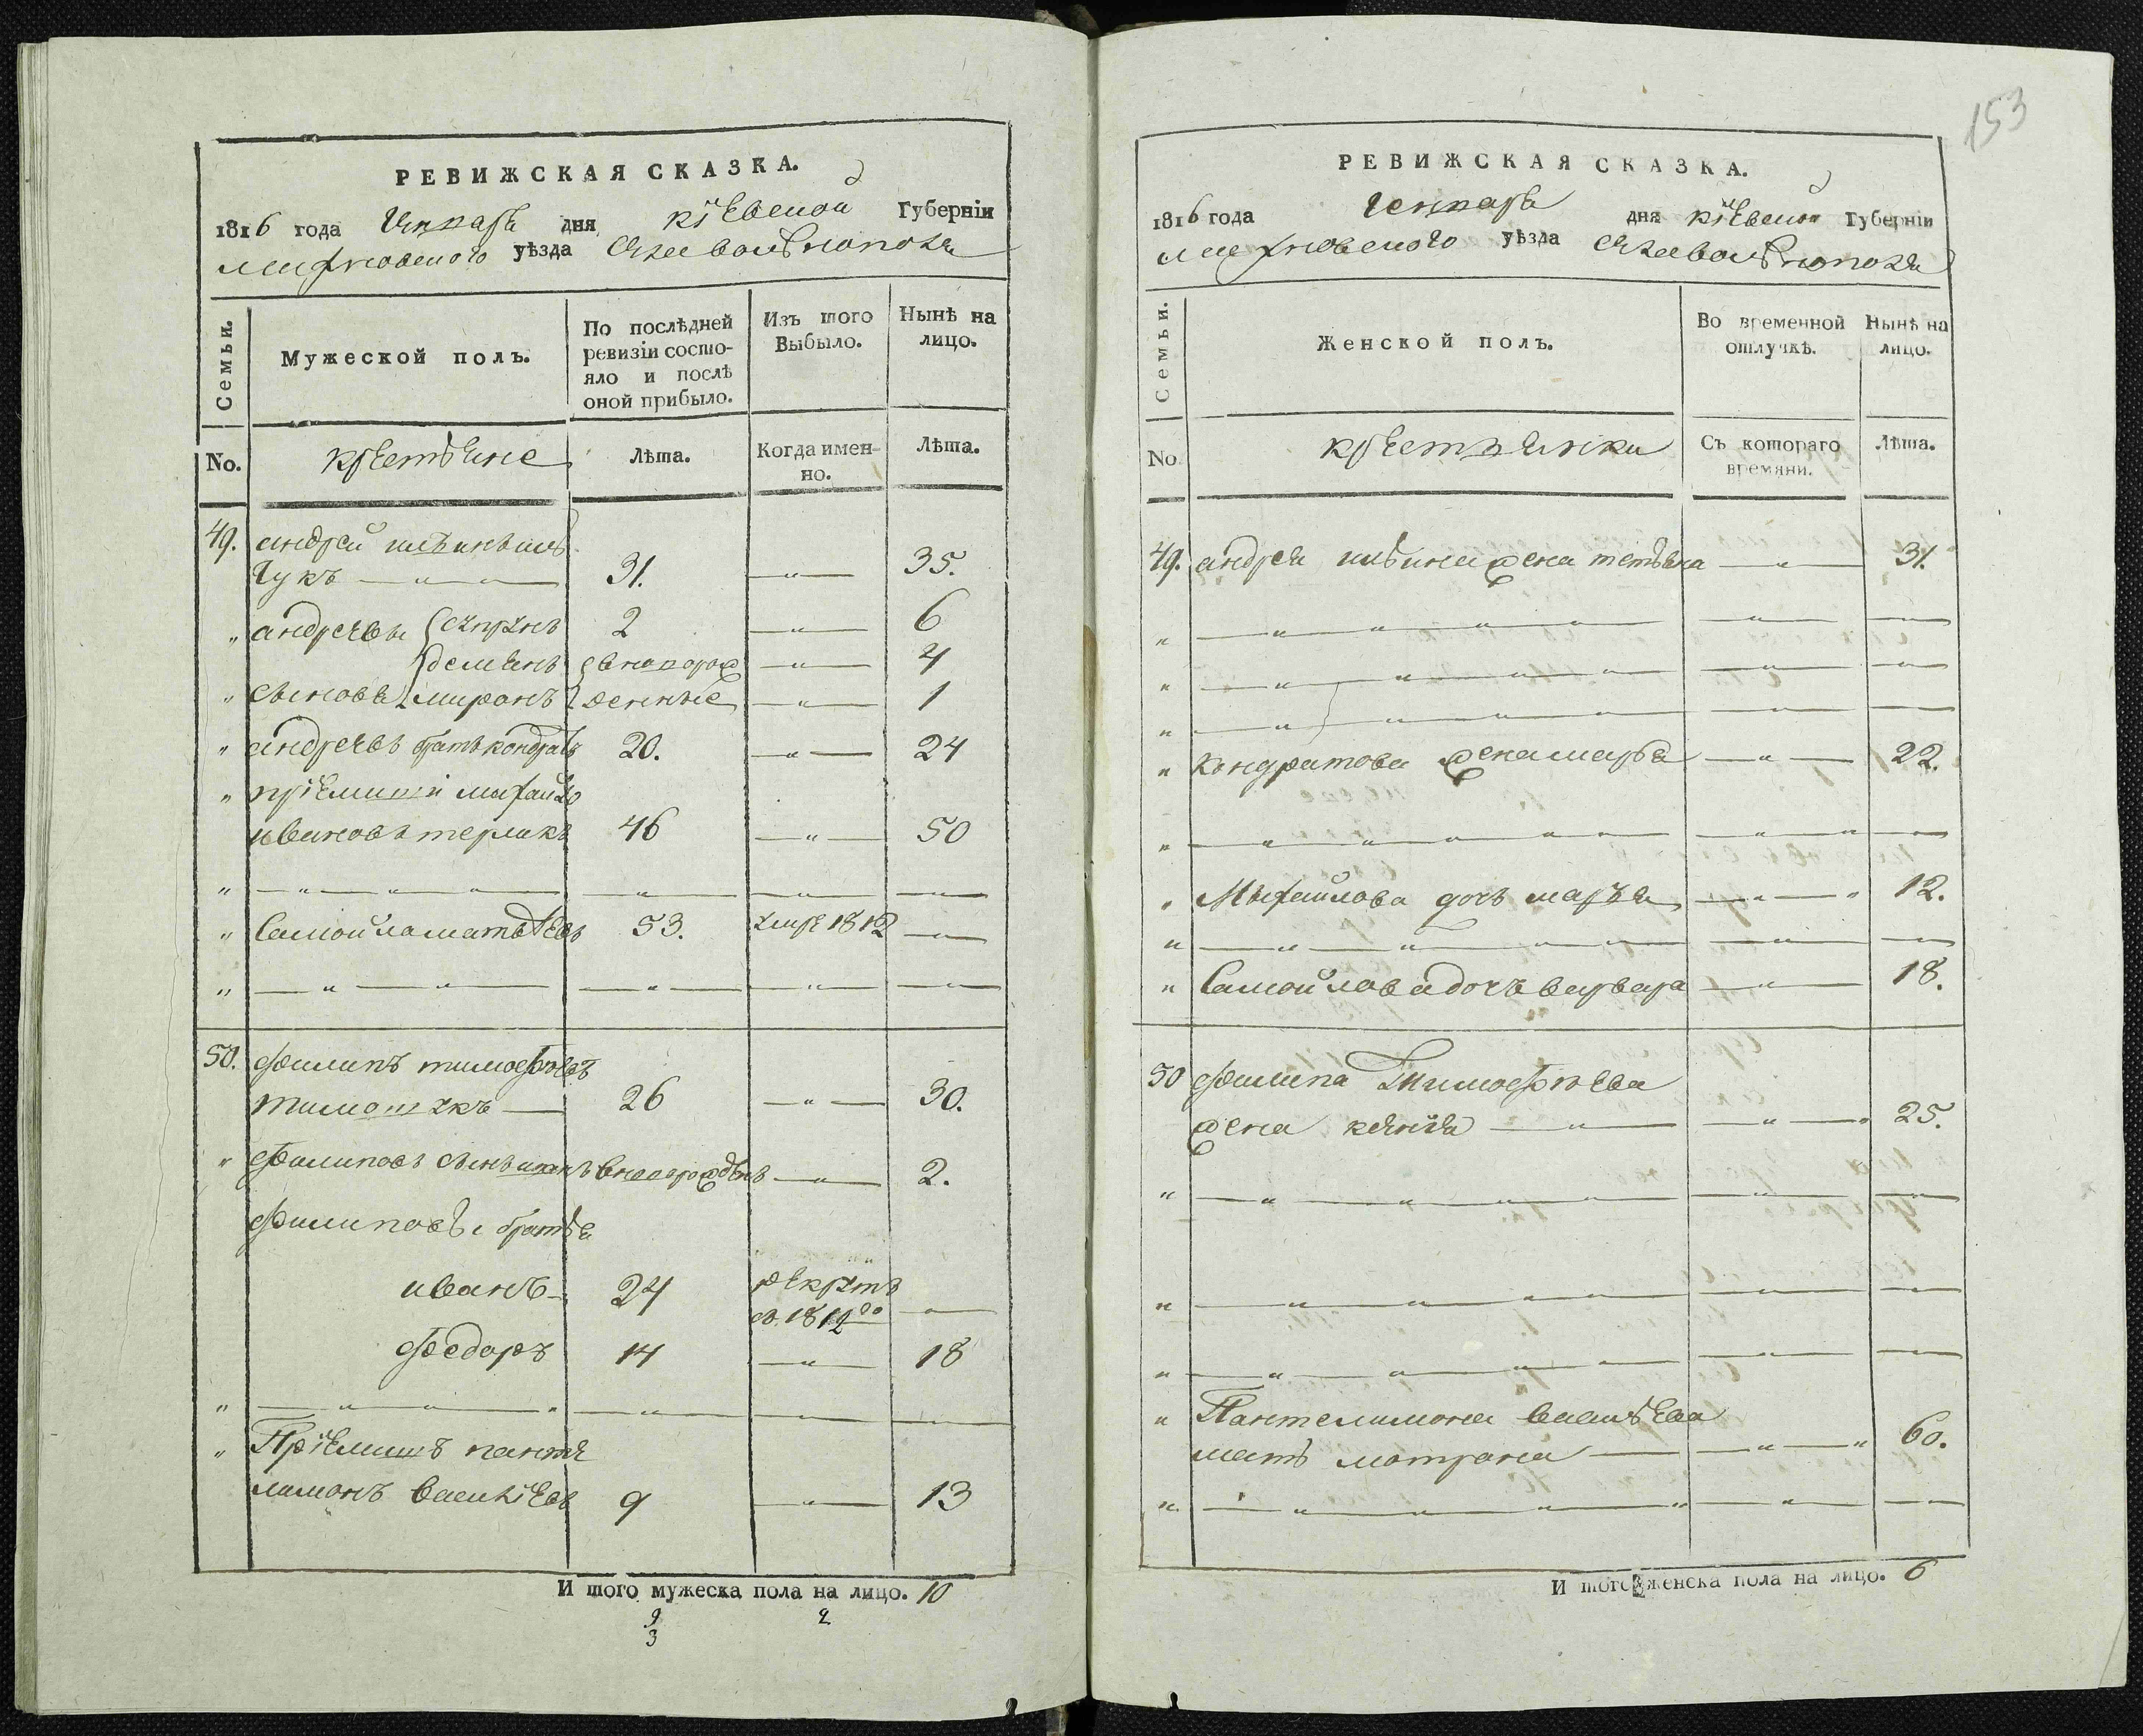 РЕВИЖСКАЯ СКАЗКА.
1816 года Генваря дня кіевской Губерніи
уѣзда
Семьи.
Мужеской полъ.
По послѣдней ревизіи состояло и послѣ оной прибыло.
Изъ того Выбыло.
Нынѣ на лицо.
No.
крестяне
Лѣта.
Когда именно.
Лѣта.
49. андрей
чукъ 31. 35.
андреевы 2 6
демянъ вноворож 4
сынова миронъ денные 1
андреевъ братъ кондратъ 20. 24
пріемыши михайло
ивановъ терликъ 46 50
Самойло матвѣевъ 53. умре 1812
50. филипъ тимофѣевъ
26 30.
филиповъ сынъ вноворожденъ 2.
филиповы братья
иванъ 24 рекрутъ
в. 1812го
федоръ 14 18
Пріемышъ панте
лимонъ василіевъ 9 13
И того мужеска пола на лицо. 10
9 2
3
153
РЕВИЖСКАЯ СКАЗКА.
1816 года Генваря дня кіевской Губерніи
уѣзда
Семьи.
Женской полъ.
Во временной отлучкѣ.
Нынѣ на лицо.
No
крестьянки
Съ котораго времяни.
Лѣта.
49. андрея ильина жена тетьяна 31.
кондратова жена марья 22.
Михайлова дочь марья 12.
Самойлова дочь варвара 18.
50 филипа Тимофѣева
жена 25.
Пантелимона василіева
мать мотрона 60.
И того женска пола на лицо. 6